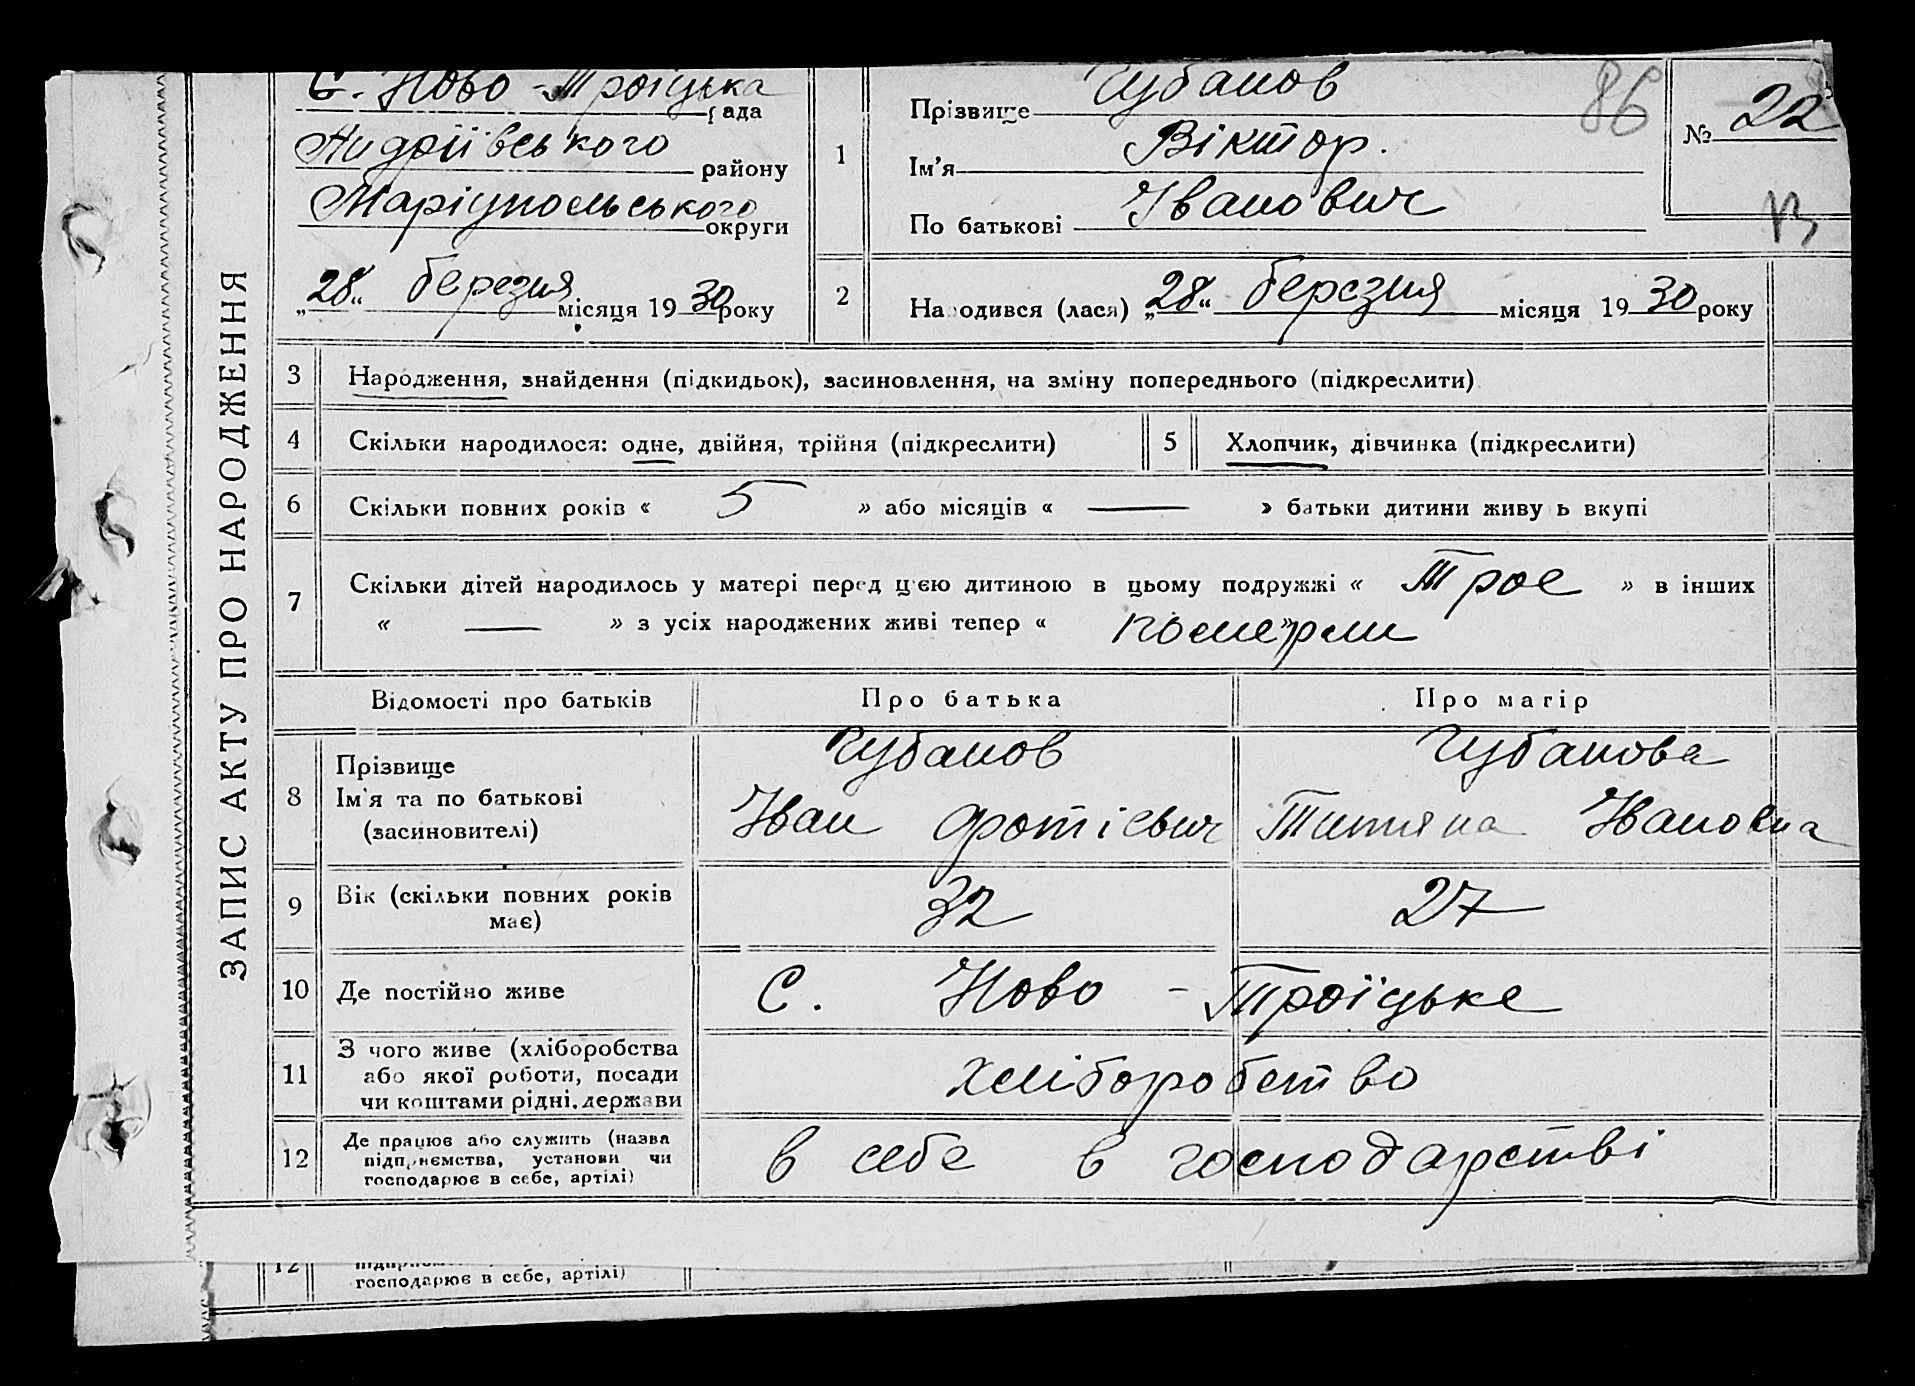 ЗАПИС АКТУ ПРО НАРОДЖЕННЯ
С. Ново-Троїцька рада
Андріївського району
Маріупольського округи
„28“ березня місяця 1930 року
1
Прізвище Чубанов
Ім'я Віктор.
По батькові Іванович
86
№ 22
В
2
Народився (лася) „28“ березня місяця 1930 року
3 Народження, знайдення (підкидьок), засиновлення, на зміну попереднього (підкреслити)
4 Скільки народилося: одне, двійня, трійня (підкреслити) 5 Хлопчик, дівчинка (підкреслити)
6 Скільки повних років « 5 » або місяців « — » батьки дитини живуть вкупі
7 Скільки дітей народилось у матері перед цією дитиною в цьому подружжі « Трое » в інших
« — » з усіх народжених живі тепер « померли »
Відомості про батьків Про батька Про матір
8 Прізвище Чубанов Чубанова
Ім'я та по батькові Іван Фотієвич Титяна Івановна
(засиновителі)
9 Вік (скільки повних років має) 32 27
10 Де постійно живе С. Ново-Троїцьке
11 З чого живе (хліборобства
або якої роботи, посади
чи коштами рідні, держави
хліборобство
12 Де працює або служить (назва
підприємства, установи чи
господарює в себе, артілі)
в себе в господарстві
12
господарює в себе, артілі)